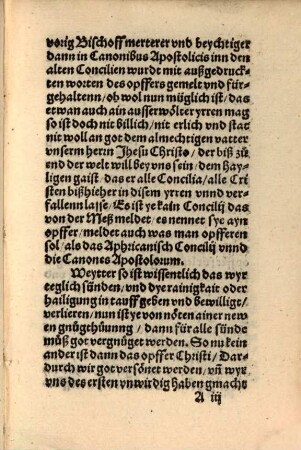 vorig Bischoff merterer vnd beychtiger
dann in Canonibus Apostolicis inn den
alten Concilien wurdt mit außgedruck-
ten worten des opffers gemelt vnd für-
gehaltenn / ob wol nun müglich ist / das
etwan auch ain ausserwölter yrren mag
so ist doch nit billich / nit erlich vnd stat
nit wol an got dem almechtigen vatter
vnserm herrn Jhesu Christo / der biß zů
end der welt will bey vns sein / dem hay-
ligen gaist / das er alle Concilia / alle Cri
sten bißhieher in disem yrren vnnd ver-
fallenn lasse / Es ist ye kain Concilij das
von der Meß meldet / es nennet sye ayn
opffer / meldet auch was man opfferen
sol / als das Aphricanisch Concilij vnnd
die Canones Apostolorum.
Weytter so ist wissentlich das wyr
teeglich sünden / vnd dye rainigkait oder
hailigung in tauff geben vnd bewillige /
verlieren / nun ist ye von nöten ainer new
en gnůgthůunng / dann für alle sünde
můß got vergnůget werden. So nu kein
ander ist dann das opffer Christi / Dar-
durch wir got versönet werden / vñ wyr
vns des ersten vnwirdig haben gmacht
A iij